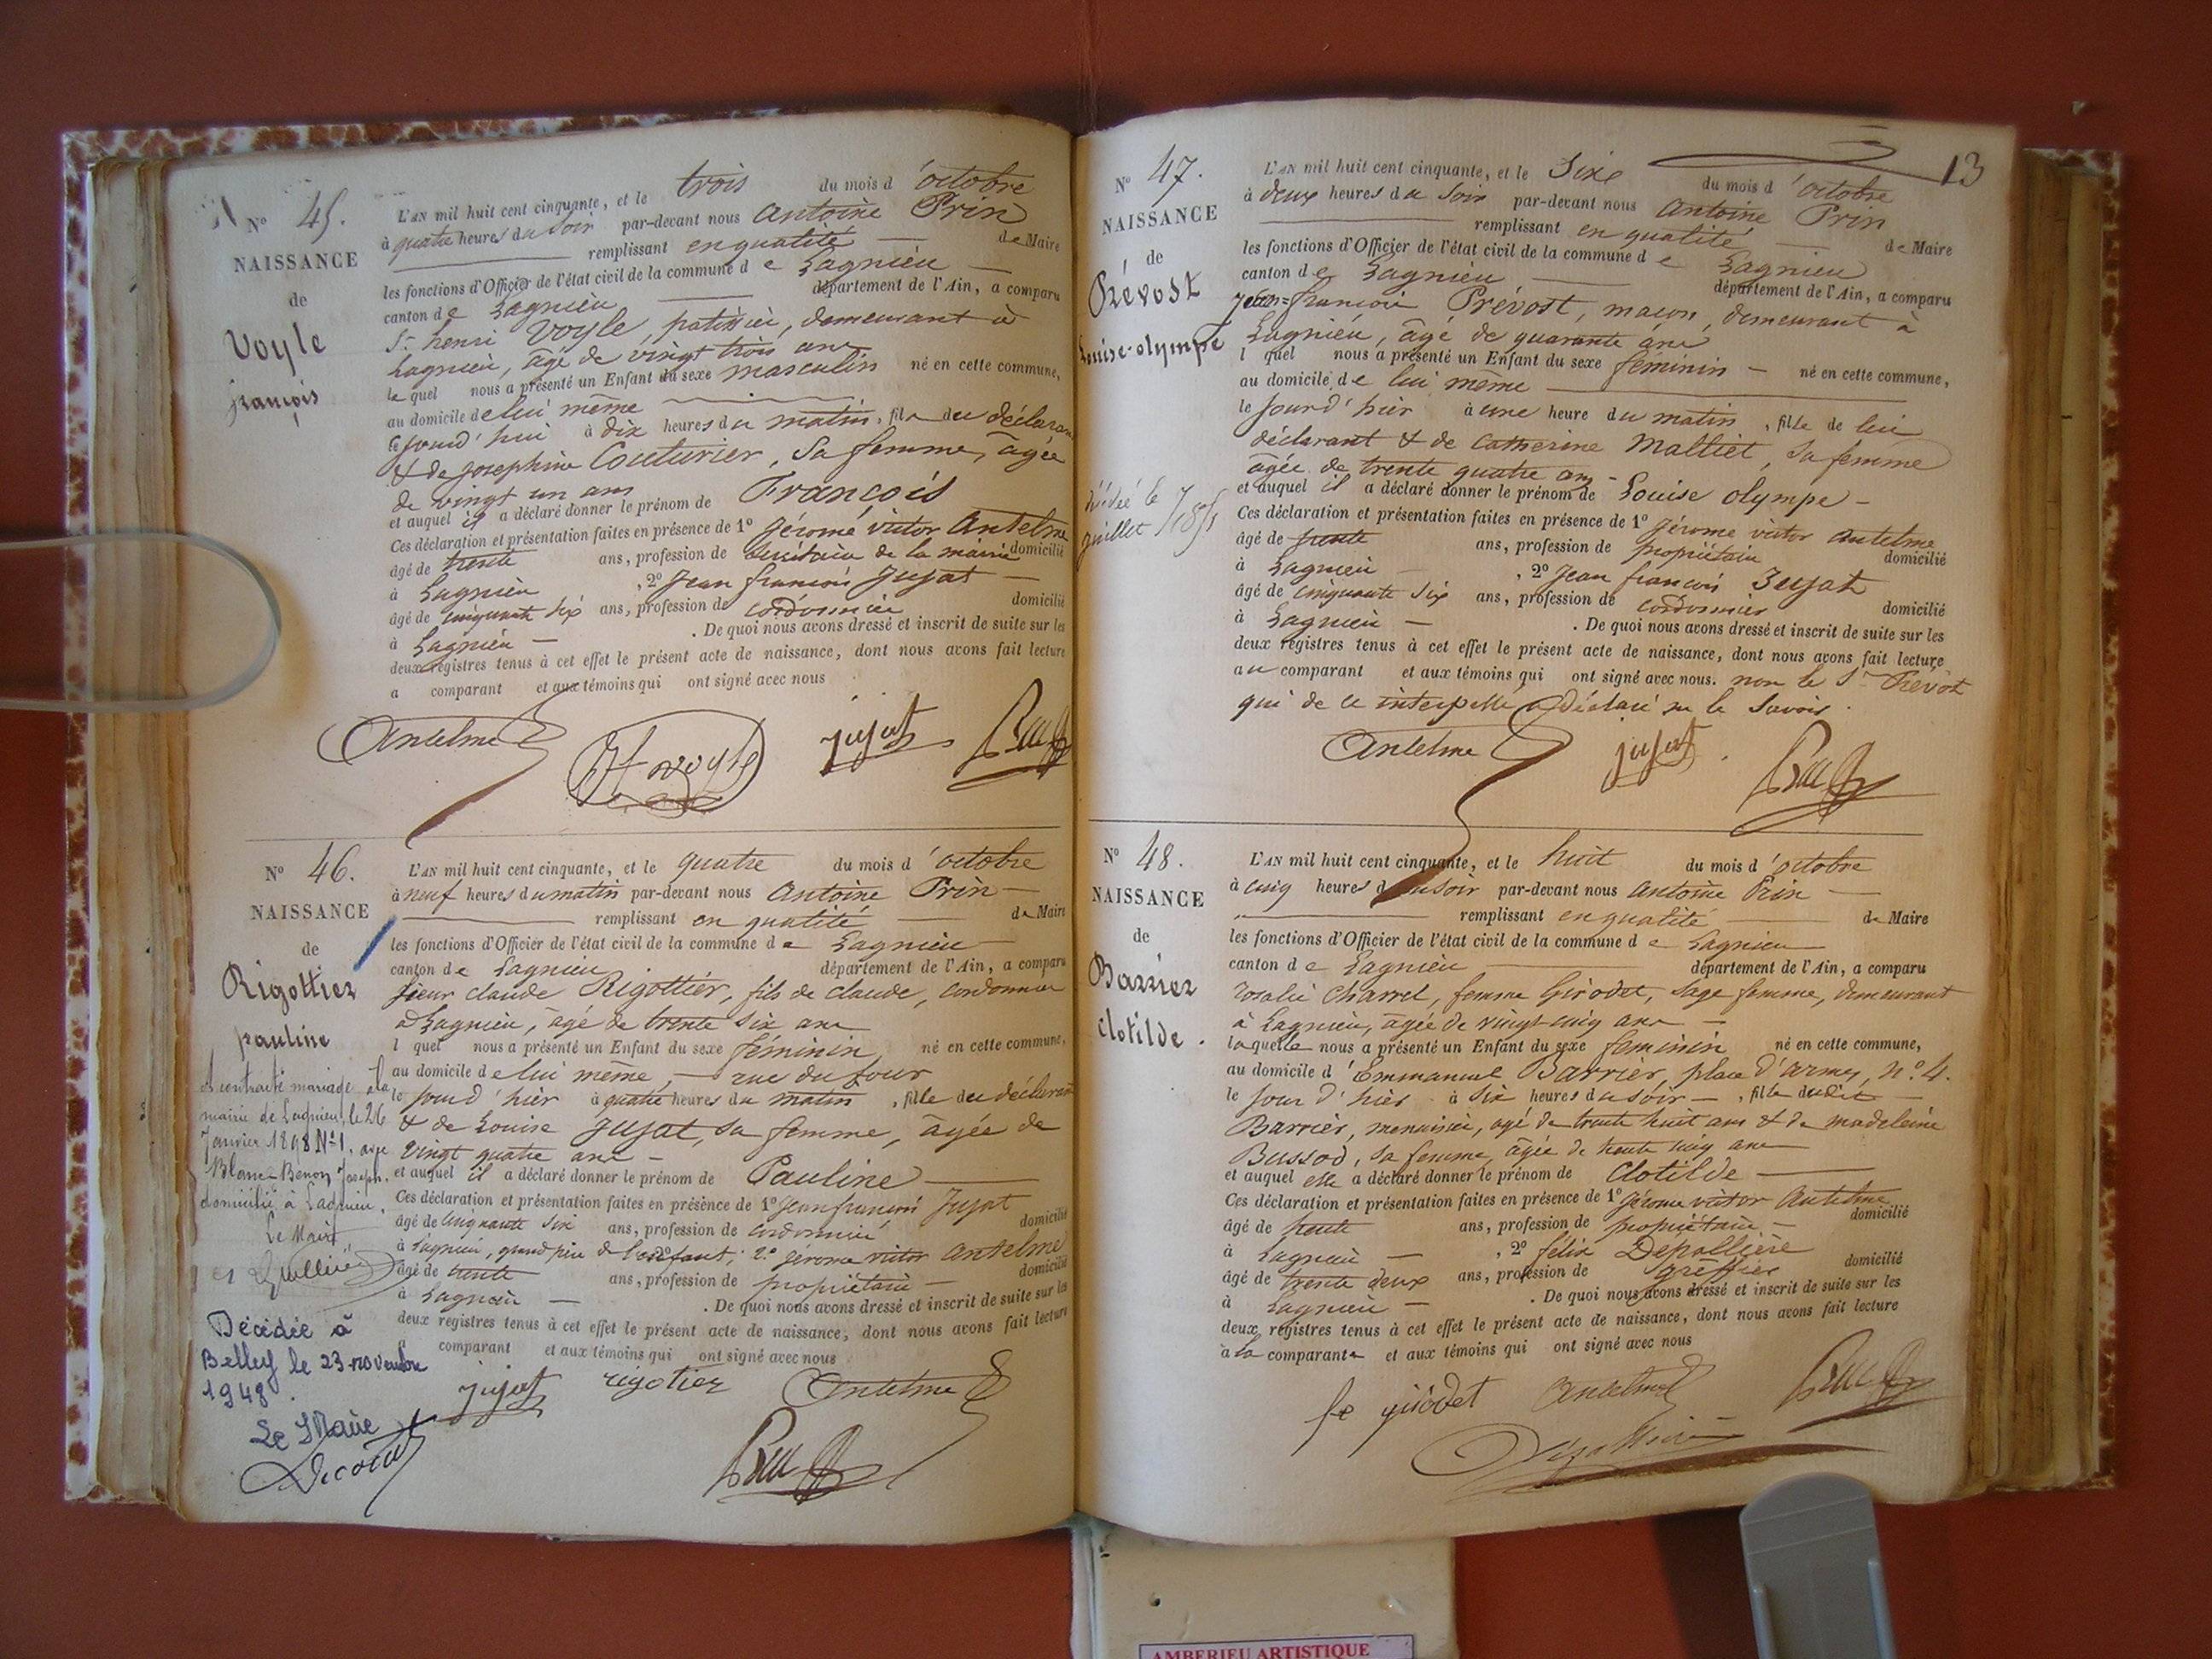 N° 45.
NAISSANCE
de
Voyle
françois
L'AN mil huit cent cinquante, et le trois du mois d'octobre
à quatre heures du soir par-devant nous Antoine Prin
remplissant en qualité de Maire
les fonctions d'Officier de l'état civil de la commune de Lagnieu
canton de Lagnieu département de l'Ain, a comparu
Sr henri Voyle, patissier, demeurant à
Lagnieu, âgé de vingt trois ans
le quel nous a présenté un Enfant du sexe masculin né en cette commune,
au domicile de lui même
ce jourd'hui à dix heures du matin, fils du déclarant
& de Josephine Couturier, sa femme, âgée
de vingt un ans
et auquel il a déclaré donner le prénom de François
Ces déclaration et présentation faites en présence de 1° Jérome victor Antelme
âgé de trente ans, profession de secrétaire de la mairie domicilié
à Lagnieu , 2° Jean françois Jujat
âgé de cinquante six ans, profession de cordonnier domicilié
à Lagnieu . De quoi nous avons dressé et inscrit de suite sur les
deux registres tenus à cet effet le présent acte de naissance, dont nous avons fait lecture
a comparant et aux témoins qui ont signé avec nous
Antelme hvoyle jujat Prin
N° 46.
NAISSANCE
de
Rigottier
pauline
A contracté mariage à la
mairie de Lagnieu, le 26
Janvier 1898 N° 1. avec
Blanc-Benon Joseph.
domicilié à Lagnieu.
Le Maire
Décédée à
Belley le 23 novembre
1948.
Le Maire
L'AN mil huit cent cinquante, et le quatre du mois d'octobre
à neuf heures du matin par-devant nous Antoine Prin
remplissant en qualité de Maire
les fonctions d'Officier de l'état civil de la commune de Lagnieu
canton de Lagnieu département de l'Ain, a comparu
sieur claude Rigottier, fils de claude, cordonnier
à Lagnieu, âgé de trente six ans
l quel nous a présenté un Enfant du sexe féminin, né en cette commune,
au domicile de lui même, rue du four
le jour d'hier à quatre heures du matin, fille du déclarant
& de Louise Jujat, sa femme, âgée de
vingt quatre ans
et auquel il a déclaré donner le prénom de Pauline
Ces déclaration et présentation faites en présence de 1° Jean françois Jujat
âgé de cinquante six ans, profession de cordonnier domicilié
à Lagnieu, grand père de l'enfant; 2° Jérome victor Antelme
âgé de trente ans, profession de propriétaire domicilié
à Lagnieu . De quoi nous avons dressé et inscrit de suite sur les
deux registres tenus à cet effet le présent acte de naissance, dont nous avons fait lecture
a comparant et aux témoins qui ont signé avec nous
jujat rigotier Antelme
Prin
13
N° 47.
NAISSANCE
de
Prévost
Louise-olympe
juillet 1851
L'AN mil huit cent cinquante, et le Six du mois d'octobre
à deux heures du soir par-devant nous Antoine Prin
remplissant en qualité de Maire
les fonctions d'Officier de l'état civil de la commune de Lagnieu
canton de Lagnieu département de l'Ain, a comparu
Jean=françois Prévost, maçon, demeurant à
Lagnieu, âgé de quarante ans
l quel nous a présenté un Enfant du sexe féminin né en cette commune,
au domicile de lui même
le jourd'hier à une heure du matin, fille de lui
déclarant & de Catherine Malliet, sa femme
âgée de trente quatre ans
et auquel il a déclaré donner le prénom de Louise olympe
Ces déclaration et présentation faites en présence de 1° Jérome victor Antelme
âgé de trente ans, profession de propriétaire domicilié
à Lagnieu , 2° Jean françois Jujat
âgé de cinquante six ans, profession de cordonnier domicilié
à Lagnieu . De quoi nous avons dressé et inscrit de suite sur les
deux registres tenus à cet effet le présent acte de naissance, dont nous avons fait lecture
au comparant et aux témoins qui ont signé avec nous. non le Sr Prévost
qui de ce interpellé a déclaré ne le savoir.
Antelme jujat Prin
N° 48.
NAISSANCE
de
Barrier
Clotilde.
L'AN mil huit cent cinquante, et le huit du mois d'octobre
à cinq heures du soir par-devant nous Antoine Prin
remplissant en qualité de Maire
les fonctions d'Officier de l'état civil de la commune de Lagnieu
canton de Lagnieu département de l'Ain, a comparu
rosalie Charrel, femme Girodet, Sage femme, demeurant
à Lagnieu, âgée de vingt-cinq ans
laquelle nous a présenté un Enfant du sexe feminin né en cette commune,
au domicile d'Emmanuel Barrier, place d'armes, n° 4.
le jour d'hier à six heures du soir, fille dudit
Barrier, menuisier, agé de trente huit ans & de madeleine
Bussod, sa femme, âgée de trente cinq ans
et auquel elle a déclaré donner le prénom de Clotilde
Ces déclaration et présentation faites en présence de 1° Jérome victor Antelme
âgé de trente ans, profession de propriétaire domicilié
à Lagnieu , 2° félix Depollière
âgé de trente deux ans, profession de greffier domicilié
à Lagnieu . De quoi nous avons dressé et inscrit de suite sur les
deux registres tenus à cet effet le présent acte de naissance, dont nous avons fait lecture
à la comparante et aux témoins qui ont signé avec nous
fe girodet Antelme Prin
AMBERIEU ARTISTIQUE